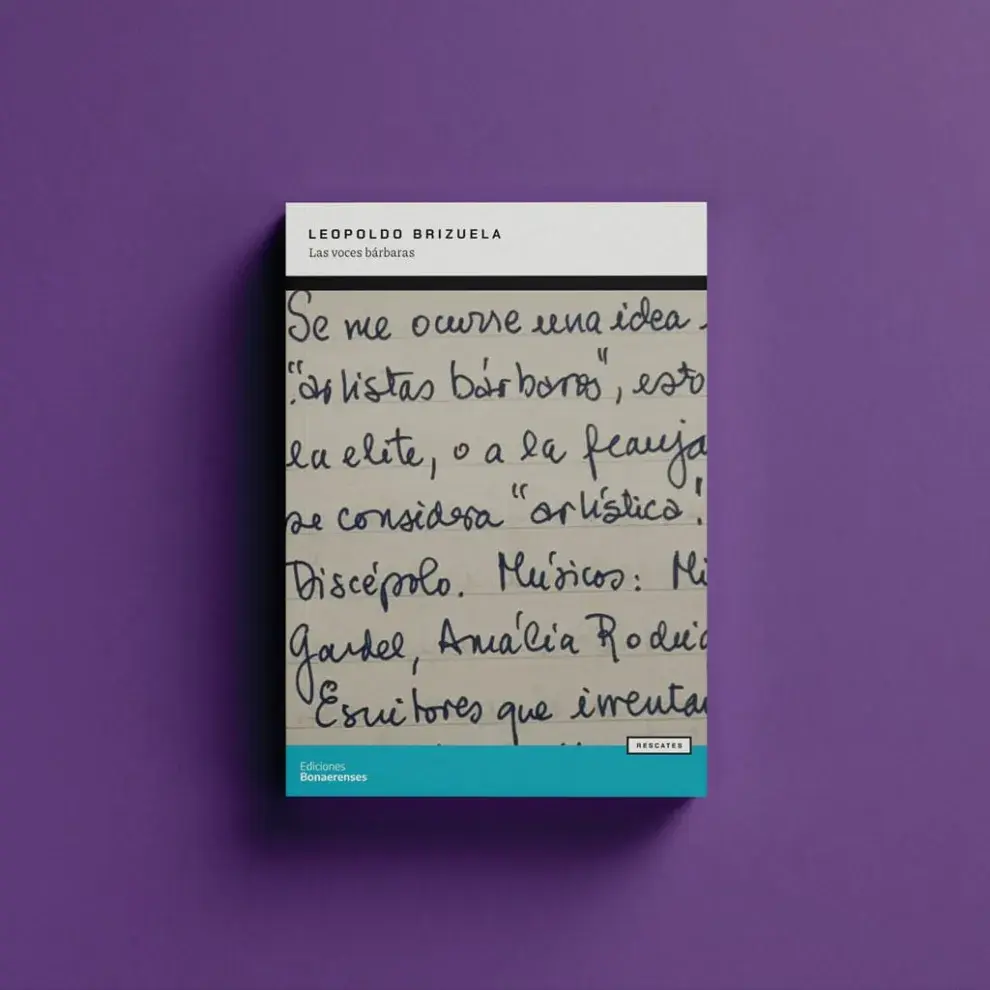 LEOPOLDO BRIZUELA
Las voces bárbaras
Se me ocurre una idea
"artistas bárbaros", esto
la elite, o a la
se considera "artístico".
Discépolo. Músicos: Mi
Gardel, Amália Rodri
Escritores que inventan
RESCATES
Ediciones
Bonaerenses